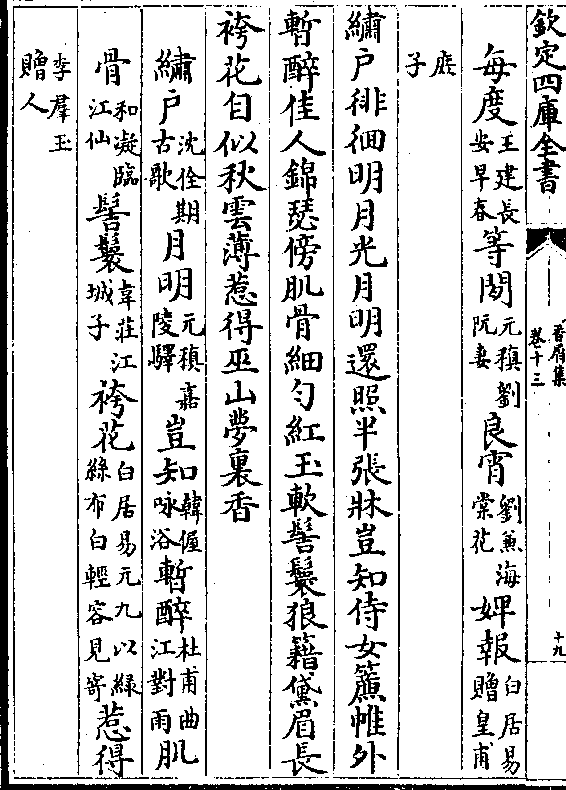 欽定四庫全書
香屑集
卷十三
十九
每度王建長安早春等閒元稹劉阮妻良宵劉兼海棠花婢報白居易贈皇甫
庶子
繡戶徘徊明月光月明還照半張牀豈知侍女簾帷外
暫醉佳人錦瑟傍肌骨細勻紅玉軟髻鬟狼籍黛眉長
袴花白似秋雲薄惹得巫山夢裏香
繡戶沈佺期古歌月明元稹嘉陵驛豈知韓偓咏浴暫醉杜甫曲江對雨肌
骨和凝臨江仙髻鬟韋莊江城子袴花白居易元九以綠絲布白輕容見寄惹得
李羣玉贈人